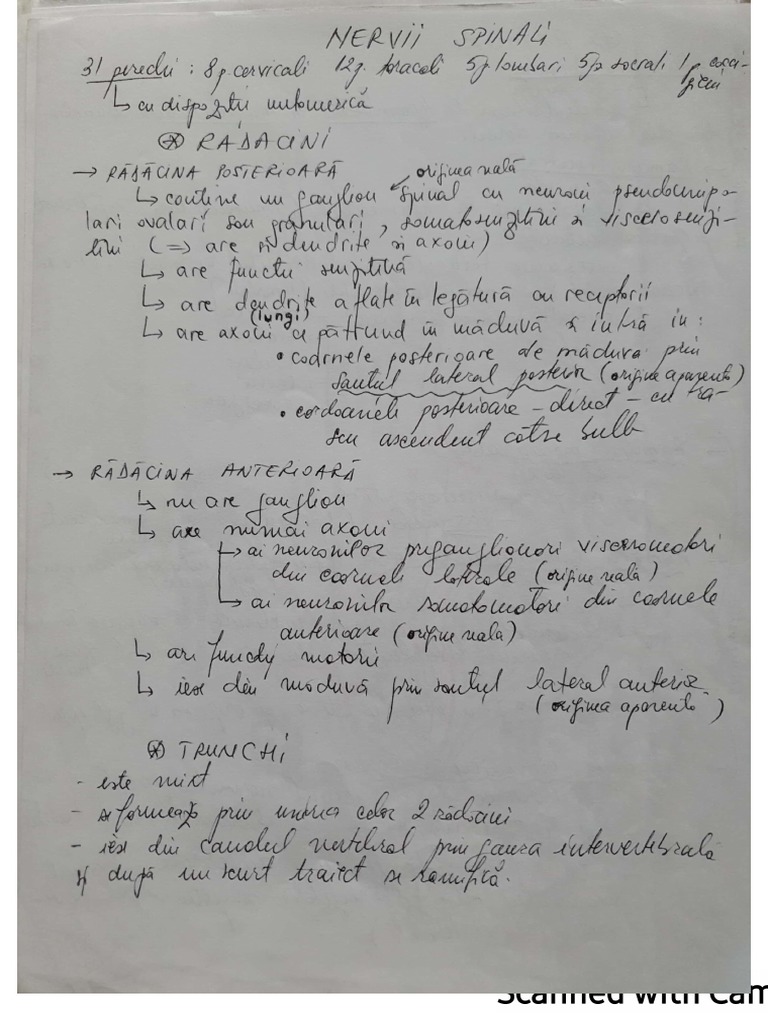 NERVII SPINALI
31 perechi : 8 p. cervicali 12 p. toracali 5 p lombari 5 p sacrali 1 p cocci-
gieni
↳ cu dispoziție metamerică
⊛ RĂDĂCINI
→ RĂDĂCINA POSTERIOARĂ originea reală
↳ conține un ganglion spinal cu neuroni pseudounipo-
lari ovalari sau granulari, somatosenzitivi și viscerosenzi-
tivi (⇒ are și dendrite și axoni)
↳ are funcție senzitivă
↳ are dendrite aflate în legătură cu receptorii
(lungi)
↳ are axoni ce pătrund în măduvă și intră în:
• coarnele posterioare ale măduvei prin
șanțul lateral posterior (origine aparentă)
• cordoanele posterioare - direct - cu tra-
seu ascendent către bulb
→ RĂDĂCINA ANTERIOARĂ
↳ nu are ganglion
↳ are numai axoni
↳ ai neuronilor preganglionari visceromotori
din coarnele laterale (origine reală)
↳ ai neuronilor somatomotori din coarnele
anterioare (origine reală)
↳ are funcție motorie
↳ iese din măduvă prin șanțul lateral anterior
(originea aparentă)
⊛ TRUNCHI
- este mixt
- se formează prin unirea celor 2 rădăcini
- iese din canalul vertebral prin gaura intervertebrală
și după un scurt traiect se ramifică.
Scanned with Cam